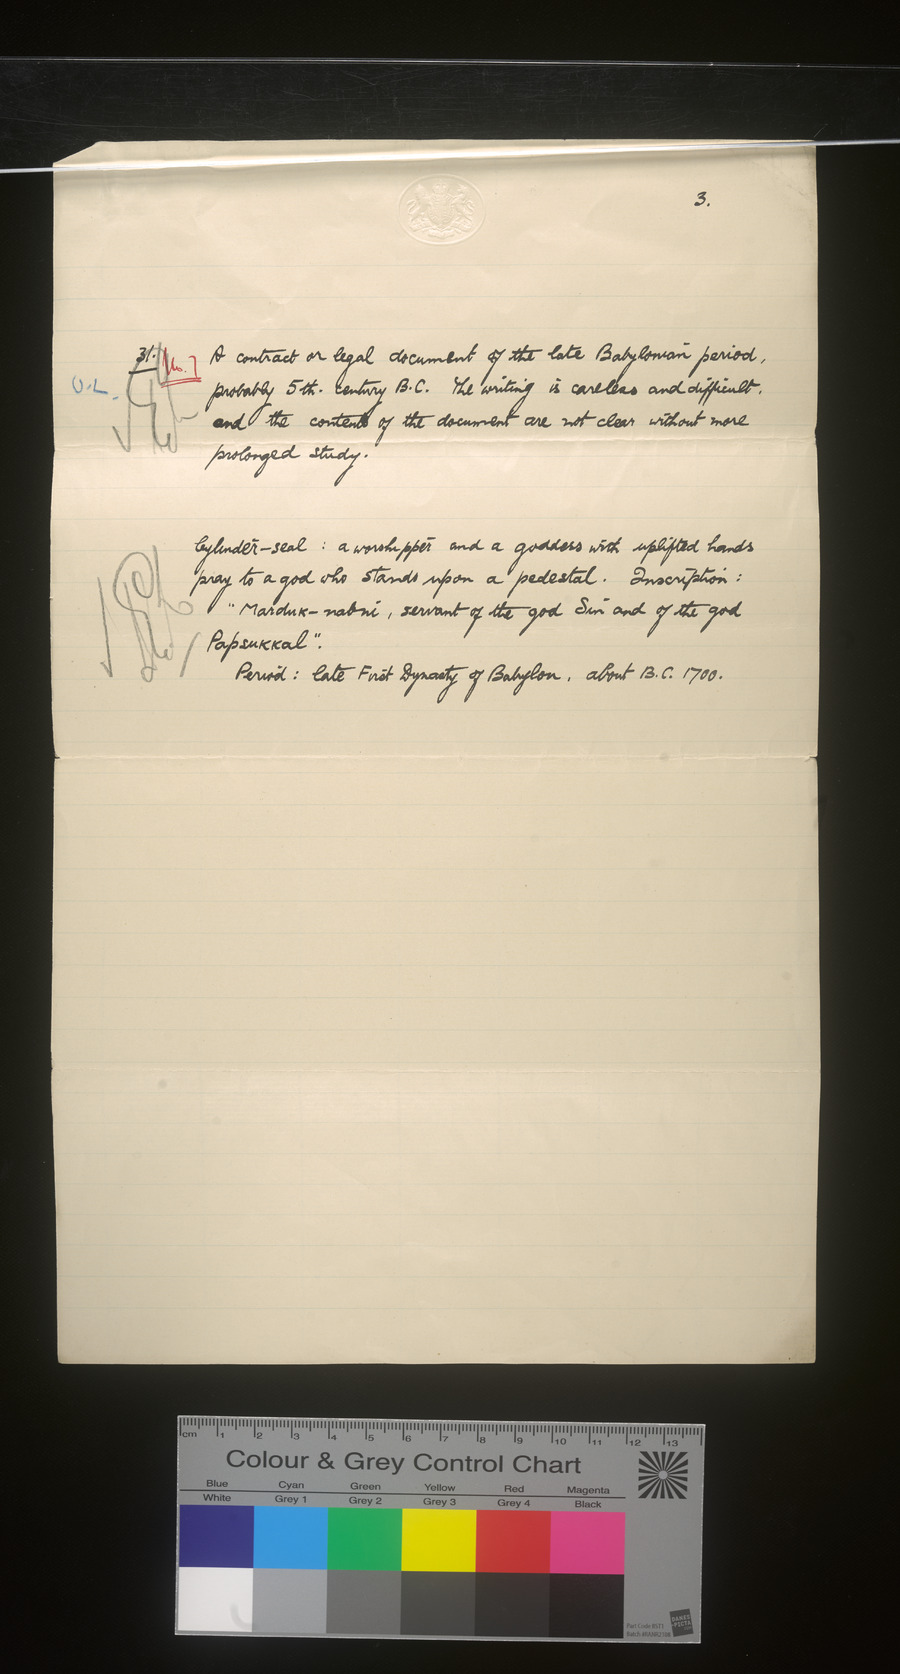 3.
31. No. 7 A contract or legal document of the late Babylonian period,
U.L. probably 5th. century B.C. The writing is careless and difficult,
and the contents of the document are not clear without more
prolonged study.
Cylinder-seal : a worshipper and a goddess with uplifted hands
pray to a god who stands upon a pedestal. Inscription :
"Marduk-nabni, servant of the god Sin and of the god
Papsukkal".
Period : late First Dynasty of Babylon, about B.C. 1700.
cm 1 2 3 4 5 6 7 8 9 10 11 12 13
Colour & Grey Control Chart
Blue Cyan Green Yellow Red Magenta
White Grey 1 Grey 2 Grey 3 Grey 4 Black
DANES
-PICTA